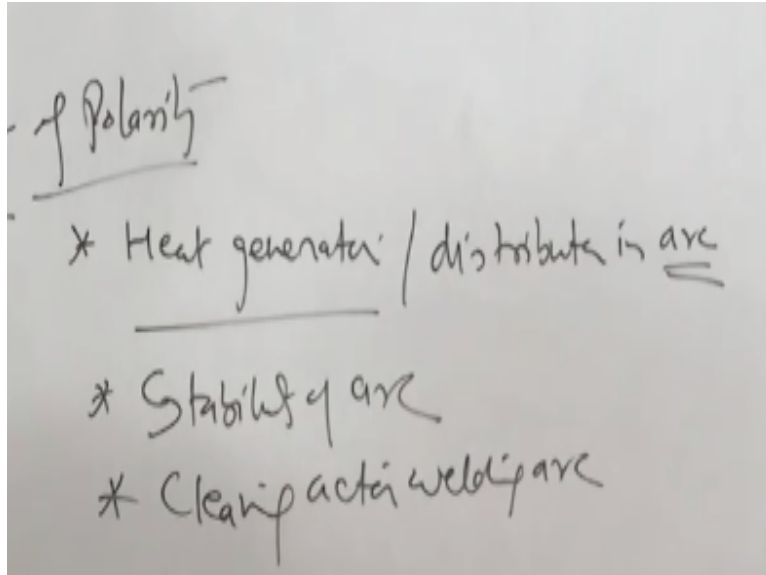 of Polarity
* Heat generation / distribution in arc
* Stability of arc
* Cleaning action welding arc